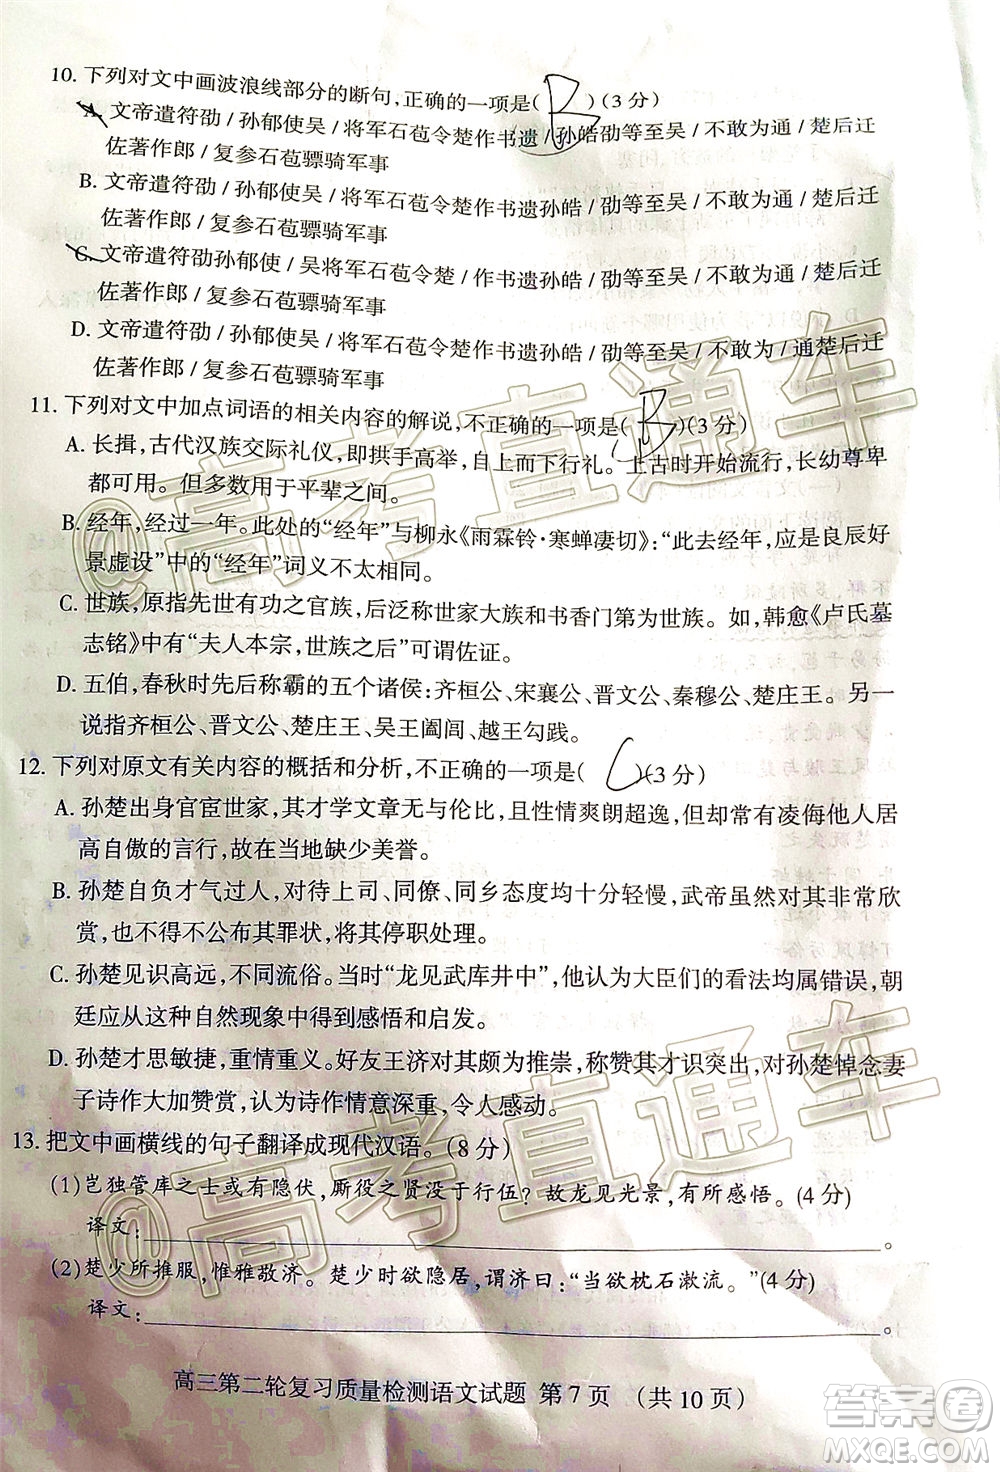 10. 下列对文中画波浪线部分的断句,正确的一项是( B )(3 分)
A. 文帝遣符劭/孙郁使吴/将军石苞令楚作书遗/孙皓劭等至吴/不敢为通/楚后迁
佐著作郎/复参石苞骠骑军事
B. 文帝遣符劭/孙郁使吴/将军石苞令楚作书遗孙皓/劭等至吴/不敢为通/楚后迁
佐著作郎/复参石苞骠骑军事
C. 文帝遣符劭孙郁使/吴将军石苞令楚/作书遗孙皓/劭等至吴/不敢为通/楚后迁
佐著作郎/复参石苞骠骑军事
D. 文帝遣符劭/孙郁使吴/将军石苞令楚作书遗孙皓/劭等至吴/不敢为/通楚后迁
佐著作郎/复参石苞骠骑军事
11. 下列对文中加点词语的相关内容的解说,不正确的一项是( B )(3 分)
A. 长揖,古代汉族交际礼仪,即拱手高举,自上而下行礼。上古时开始流行,长幼尊卑
都可用。但多数用于平辈之间。
B. 经年,经过一年。此处的“经年”与柳永《雨霖铃·寒蝉凄切》:“此去经年,应是良辰好
景虚设”中的“经年”词义不太相同。
C. 世族,原指先世有功之官族,后泛称世家大族和书香门第为世族。如,韩愈《卢氏墓
志铭》中有“夫人本宗,世族之后”可谓佐证。
D. 五伯,春秋时先后称霸的五个诸侯:齐桓公、宋襄公、晋文公、秦穆公、楚庄王。另一
说指齐桓公、晋文公、楚庄王、吴王阖闾、越王勾践。
12. 下列对原文有关内容的概括和分析,不正确的一项是( C )(3 分)
A. 孙楚出身官宦世家,其才学文章无与伦比,且性情爽朗超逸,但常常有凌侮他人居
高自傲的言行,故在当地缺少美誉。
B. 孙楚自负才气过人,对待上司、同僚、同乡态度均十分轻慢,武帝虽然对其非常欣
赏,也不得不公布其罪状,将其停职处理。
C. 孙楚见识高远,不同流俗。当时“龙见武库井中”,他认为大臣们的看法均属错误,朝
廷应从这种自然现象中得到感悟和启发。
D. 孙楚才思敏捷,重情重义。好友王济对其颇为推崇,称赞其才识突出,对孙楚悼念妻
子诗作大加赞赏,认为诗作情意深重,令人感动。
13. 把文中画横线的句子翻译成现代汉语。(8 分)
(1)岂独管库之士或有隐伏,厮役之贤没于行伍?故龙见光景,有所感悟。(4 分)
译文:。
(2)楚少所推服,惟雅敬济。楚少时欲隐居,谓济曰:“当欲枕石漱流。”(4 分)
译文:。
高三第二轮复习质量检测语文试题 第 7 页 (共 10 页)
@高考直通车
@高考直通车
答案圈
MXQE.COM